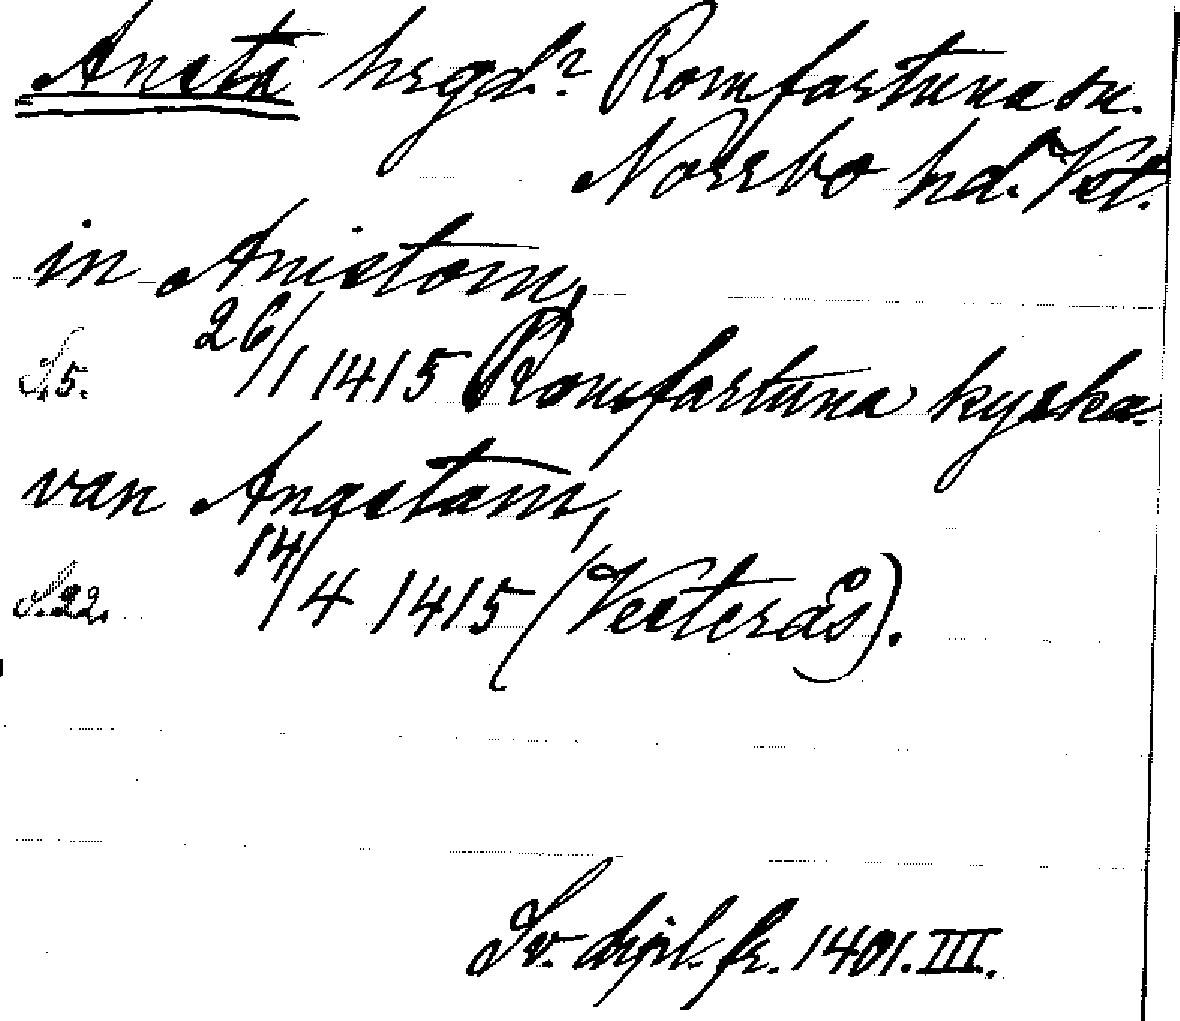 Ansta hrgd. Romfartuna sn.
Norrbo hd. Vst.
in Anistom,
S. 5. 26/1 1415 Romfartuna kyrka.
van Anastam,
S. 22. 14/4 1415 (Vesterås).
Sv. dipl. fr. 1401. III.